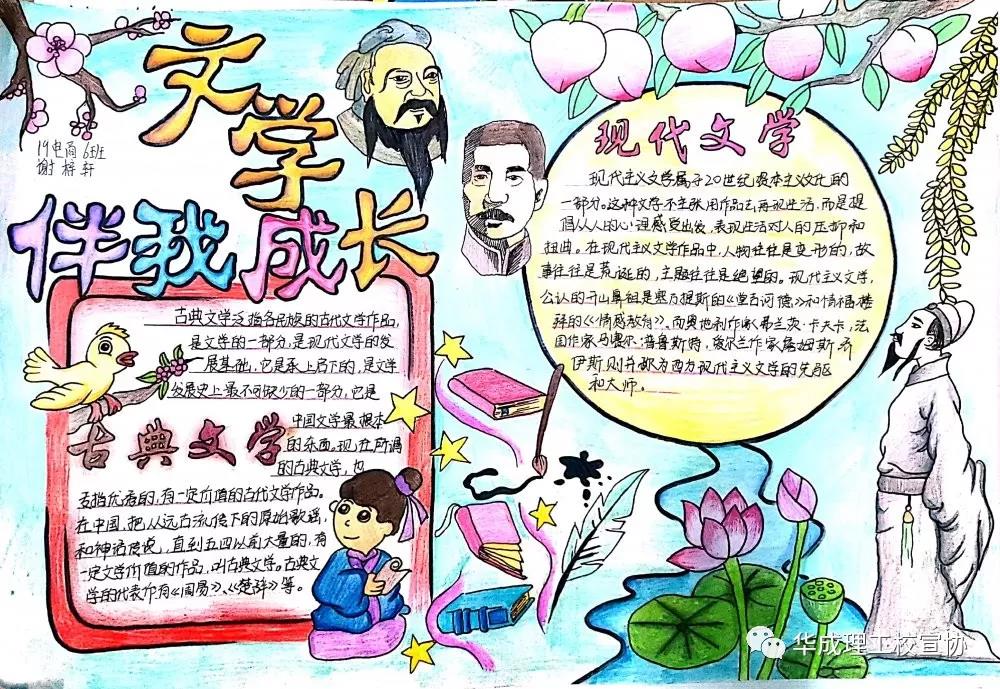 文学
伴我成长
19电商6班
谢梓轩
古典文学泛指各民族的古代文学作品,
是文学的一部分,是现代文学的发
展基础,它是承上启下的,是文学
发展史上最不可缺少的一部分,它是
古典文学
中国文学最根本
的东西。现在所谓
的古典文学,也
多指优秀的,有一定价值的古代文学作品。
在中国,把从远古流传下的原始歌谣,
和神话传说,直到五四以前大量的,有
一定文学价值的作品,叫古典文学。古典文
学的代表作有《周易》、《楚辞》等。
现代文学
现代主义文学属于20世纪资本主义文化的
一部分。这种文学不主张用作品去再现生活,而是提
倡从人的心理感觉出发,表现生活对人的压抑和
扭曲。在现代主义文学作品中,人物往往是变形的,故
事往往是荒诞的,主题往往是绝望的。现代主义文学,
公认的开山鼻祖是塞万提斯的《堂吉诃德》和情福楼
拜的《情感教育》。而奥地利作家弗兰茨·卡夫卡,法
国作家马塞尔·普鲁斯特,爱尔兰作家詹姆斯·乔
伊斯则并称为西方现代主义文学的先驱
和大师。
华成理工校宣协